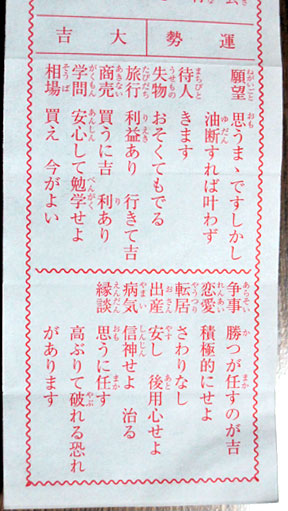 運勢 大吉
願望 思うまゝですしかし
油断すれば叶わず
待人 きます
失物 おそくてもでる
旅行 利益あり 行きて吉
商売 買うに吉 利あり
学問 安心して勉学せよ
相場 買え 今がよい
争事 勝つが任すのが吉
恋愛 積極的にせよ
転居 さわりなし
出産 安し 後用心せよ
病気 信神せよ 治る
縁談 思うに任す
高ぶりて破れる恐れ
があります